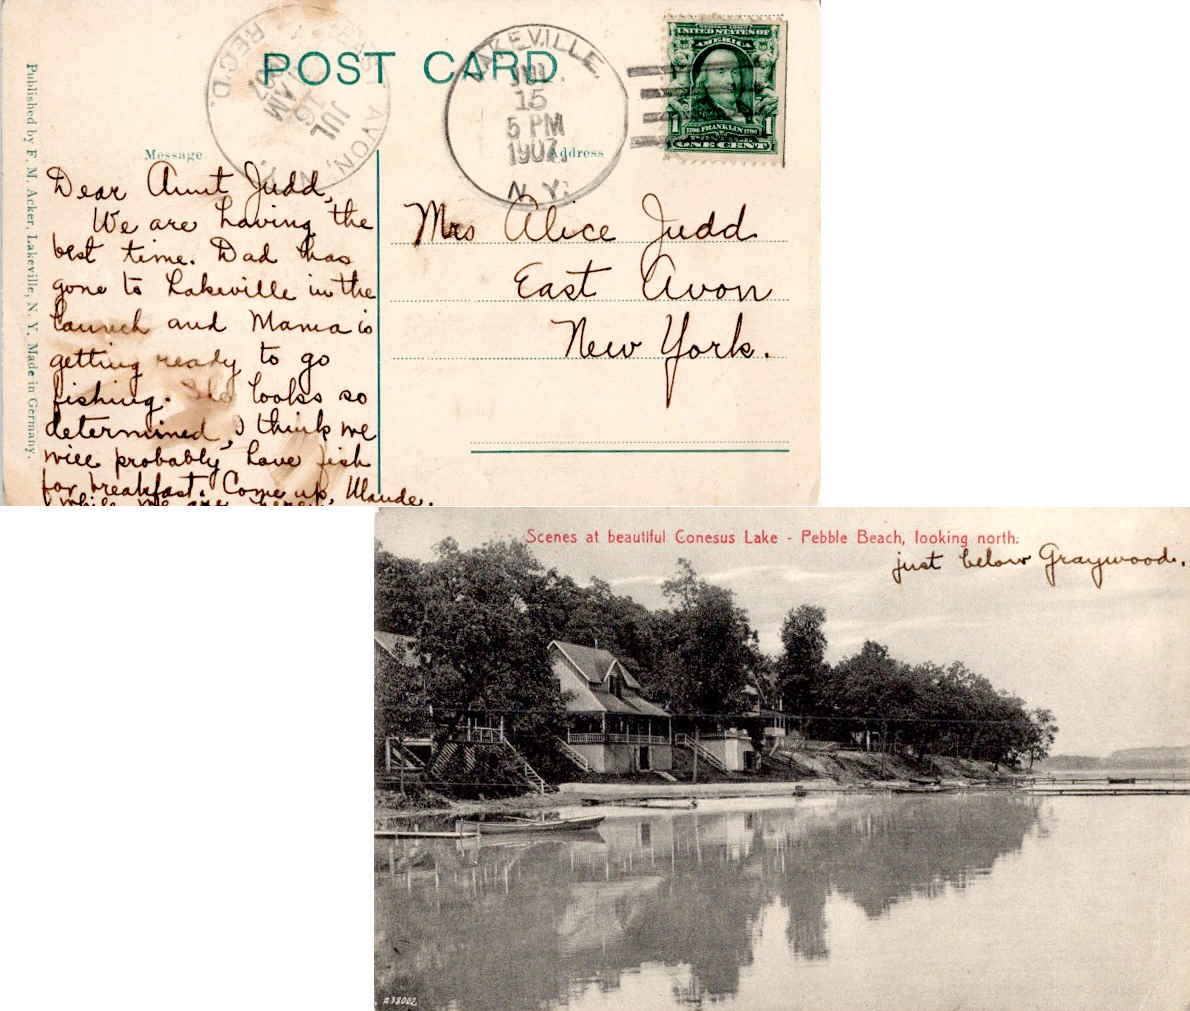 POST CARD
REC'D.
AVON, N.
JUL
16
AM
07
LAKEVILLE.
JUL
15
5 PM
1907.
N.Y.
SERIES 1902
UNITED STATES OF
AMERICA
1706 FRANKLIN 1790
1 1
ONE CENT
Published by F. M. Acker, Lakeville, N. Y. Made in Germany.
Message
Address
Dear Aunt Judd,
We are having the
best time. Dad has
gone to Lakeville in the
launch and Mama is
getting ready to go
fishing. She looks so
determined, I think we
will probably have fish
for breakfast. Come up, Maude.
while we are here
Mrs Alice Judd
East Avon
New York.
Scenes at beautiful Conesus Lake - Pebble Beach, looking north.
just below Graywood.
A 38002